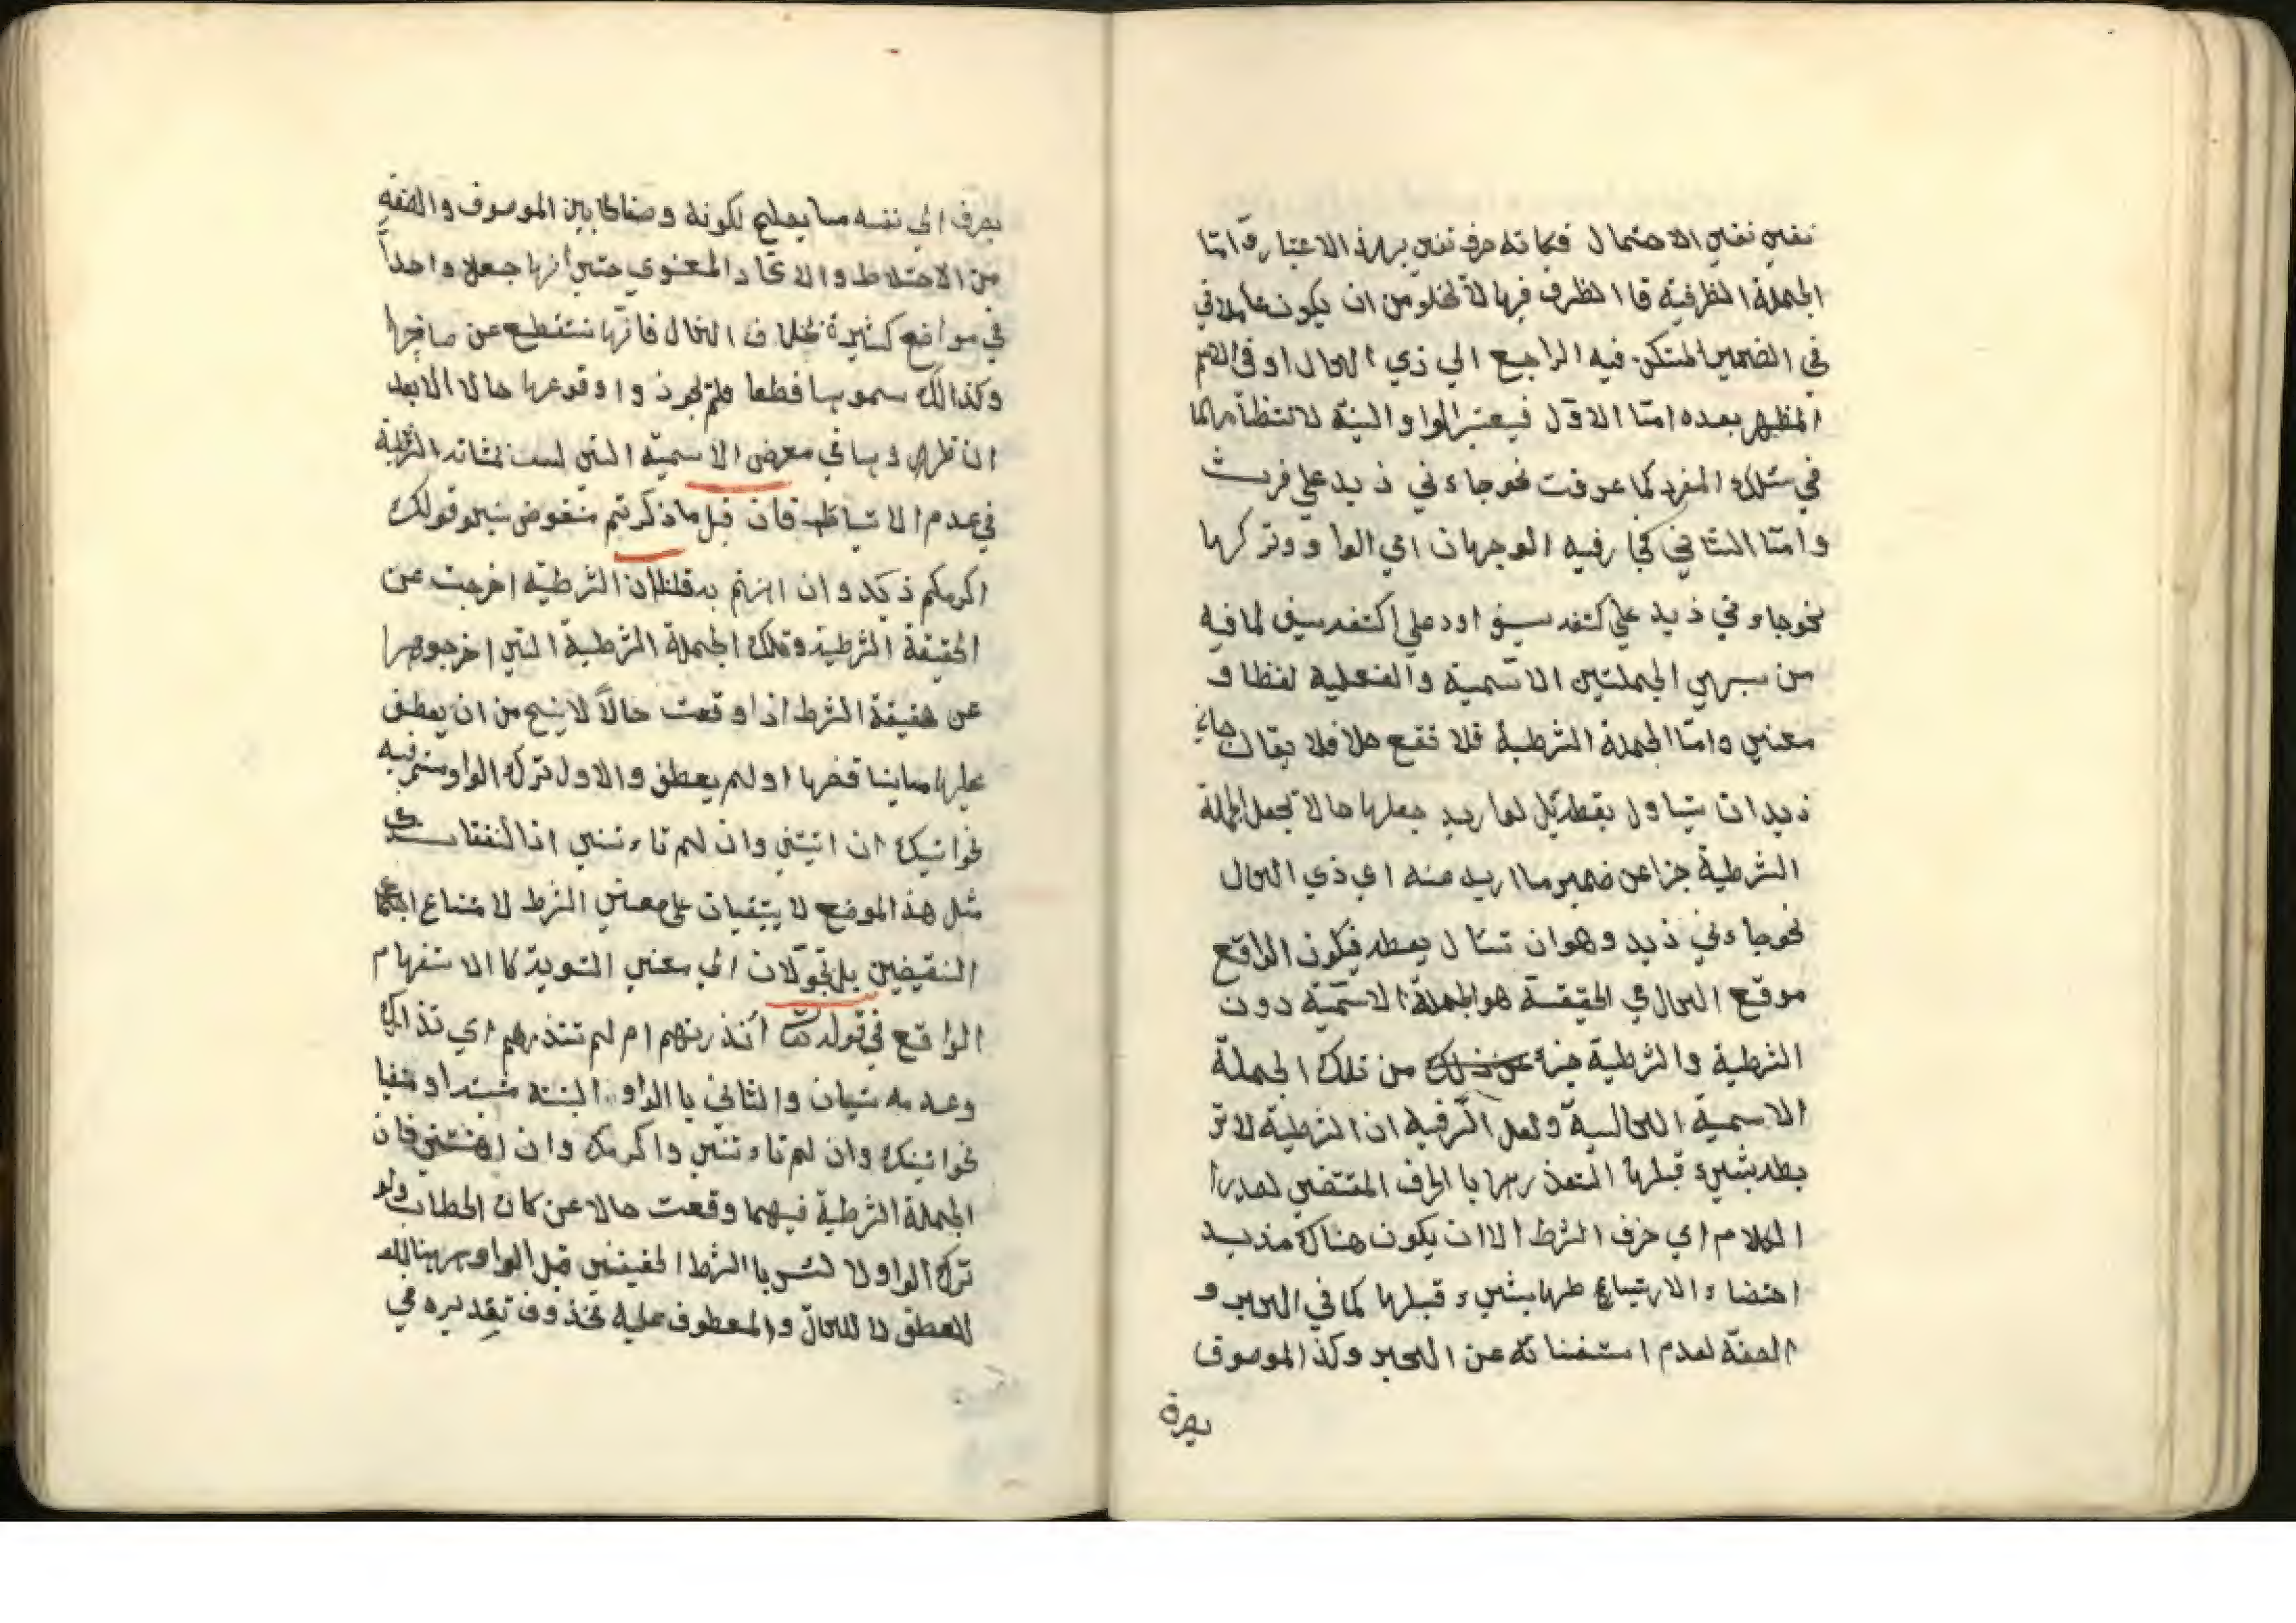 نفين نفين الاحتمال فكانه حرف نفين بهذه الاعتبار و امّا
الجملة الظرفية فا الظرف فيها لا تخلو من ان يكون عاملا في
في الضمير المتكن فيه الراجع الي ذي الحال او في الاسم
المظهر بعده امّا الاوّل فيعتبر الواو البتّة
في سلك المفرد كما عرفت نحو جاءني زيد علي فرس
وامّا الثاني فجا فيه الوجهان اي الواو وتركها
نحو جاءني زيد علي كتفه سيف او وعلي كتفه سيف لما فيه
من شبهي الجملتين الاسمية والفعلية لفظا و
معني وامّا الجملة الشرطية فلا تقع حالا فلا يقال جاني
زيد ان يتساول يعط بل لو اريد جعلها حالا تجعل الجملة
الشرطية جزا عن ضمير ما اريد منه اي ذي الحال
نحو جاءني زيد وهو ان تسال يعط فيكون الواقع
موقع الحال في الحقيقة هو الجملة الاسميّة دون
الشرطية والشرطية جزء عن ذلك من تلك الجملة
الاسمية الحالية ولعل السّر فيه ان الشرطية لا تر
بط بشيء قبلها لتصدرها با الحرف المقتضي لصدر
الكلام اي حرف الشرط الا ان يكون هناك مذيد
اقتضاء الارتباع طها بشيء قبلها كما في الخبر و
الصفة لعدم استغنائه عن الخبر وكذا الموصوف
يصرف
يصرف الي نفسه ما يصلح لكونه وصفا لما بين الموصوف والصفة
من الاختلاط والاتحاد المعنوي حتي أنها جعلا واحداً
في مواضع كثيرة بخلاف الحال فانّها تنقطع عن صاحبها
وكذالك سموها قطعا فلم يجوزوا وقوعها حالا الا بعد
في معرض الاسمية التي ليست بمثابة الشرطية
في عدم الارتباط فان قيل ما ذكرتم منقوض بنحو قولك
اكرمكم زيد وان اهنتم به قلنا ان الشرطية اخرجت عن
الحقيقة الشرطية وتلك الجملة الشرطية التي اخرجوها
عن حقيقة الشرط اذا وقعت حالاً لا ينح من ان يعطف
عليها ما يناقضها او لم يعطف والاول ترك الواو مستمر فيه
نحو اتيتك ان اتيتني وان لم تاءتني اذ النقضان في
مثل هذا الموضع لا يبقيان علي معني الشرط لامتناع اجتماع
النقيضين بل تحوّلان الي معني التسوية كا الاستفهام
الواقع في قوله تعا أنذرتهم ام لم تنذرهم اي
وعدمه سيان والثاني با الواو البتة
نحو اتيتك وان لم تاءتني واكرمك وان اهنتني فان
الجملة الشرطية فيهما وقعت حالا عن كاف الخطاب ولو
ترك الواو لا لتبس با الشرط الحقيقي قيل الواو ههنا
للعطف لا للحال والمعطوف عليه محذوف تقديره في